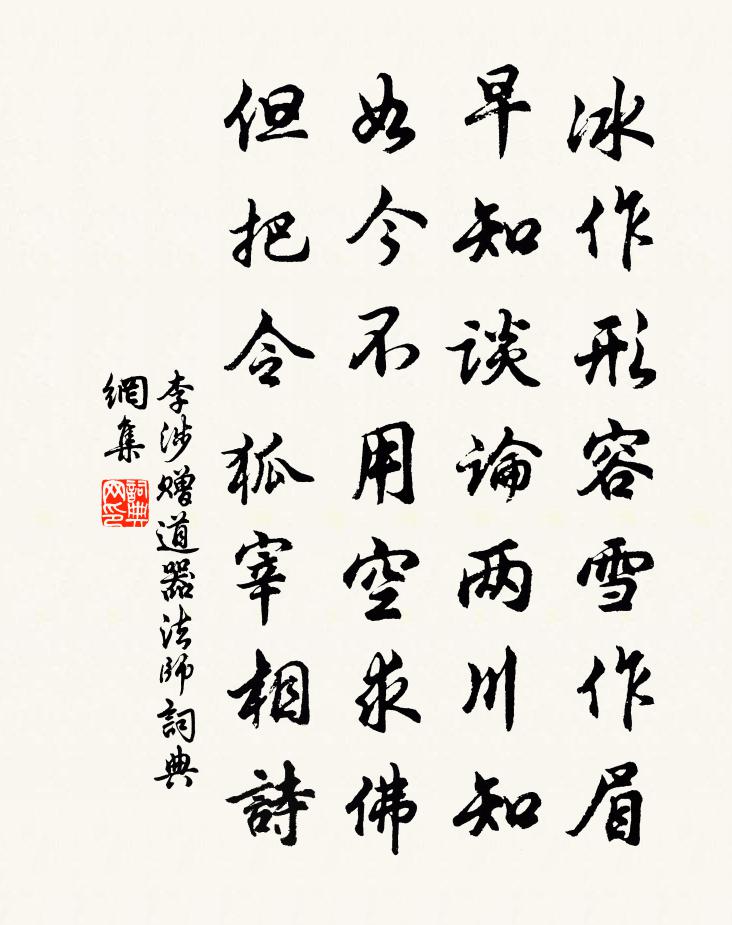 冰作形容雪作眉
早知談論两川知
如今不用空求佛
但把令狐宰相詩
李涉赠道器法師詞典
網集
詞典
网印